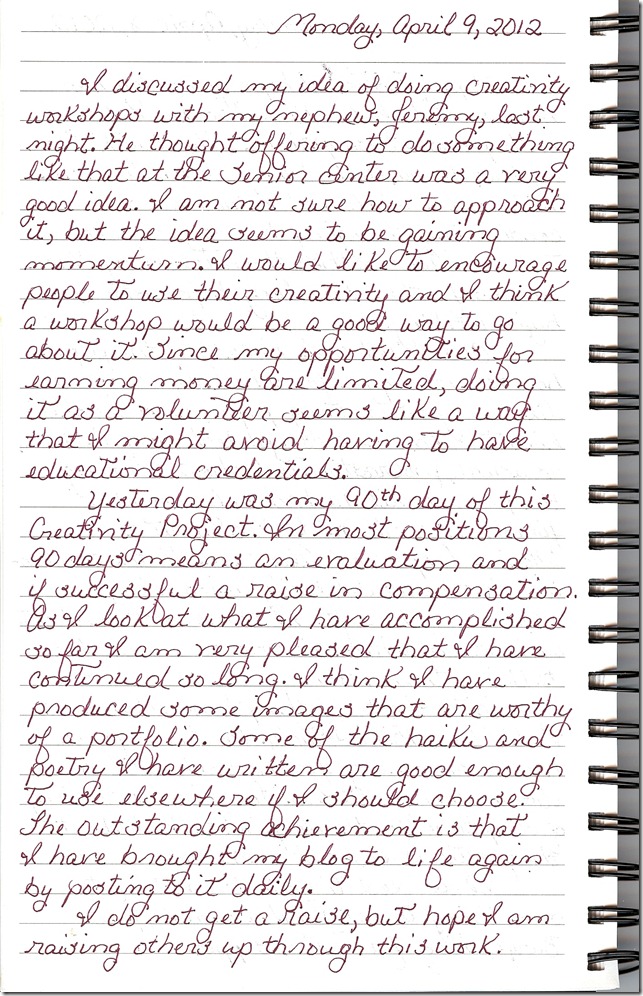 Monday, April 9, 2012
I discussed my idea of doing creativity
workshops with my nephew, Jeremy, last
night. He thought offering to do something
like that at the Senior Center was a very
good idea. I am not sure how to approach
it, but the idea seems to be gaining
momentum. I would like to encourage
people to use their creativity and I think
a workshop would be a good way to go
about it. Since my opportunities for
earning money are limited, doing
it as a volunteer seems like a way
that I might avoid having to have
educational credentials.
Yesterday was my 90th day of this
Creativity Project. In most positions
90 days means an evaluation and
if successful a raise in compensation.
As I look at what I have accomplished
so far I am very pleased that I have
continued so long. I think I have
produced some images that are worthy
of a portfolio. Some of the haiku and
poetry I have written are good enough
to use elsewhere if I should choose.
The outstanding achievement is that
I have brought my blog to life again
by posting to it daily.
I do not get a raise, but hope I am
raising others up through this work.